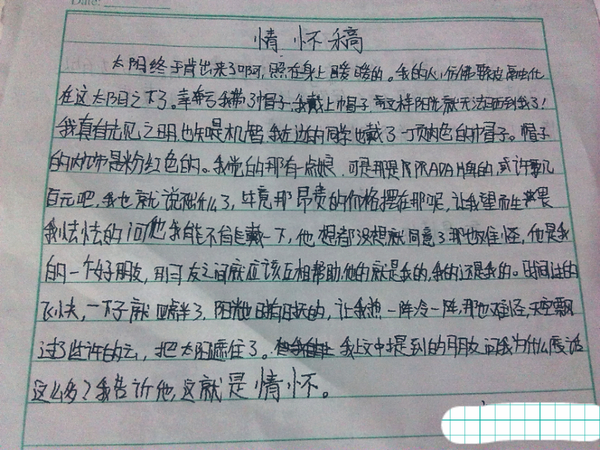 Date:
情怀稿
太阳终于肯出来了啊,照在身上暖暖的。我的人仿佛要被融化
在这太阳之下了。幸亏我带了帽子,我戴上帽子,这样阳光就无法晒到我了!
我真有先见之明也是机智,我左边的同学也戴了一顶肉色的帽子。帽子
的内饰是粉红色的。我觉的那有一点娘,可是那是PRADA牌的,或许要几
百元吧,我也就说不什么了,毕竟那昂贵的价格摆在那呢,让我望而生畏
我怯怯的问他我能不能戴一下,他想都没想就同意了那也难怪,他是我
的一个好朋友,朋友之间就应该互相帮助,他的就是我的,我的还是我的。时间过的
飞快,一下子就 半了,阳光也时有时无的,让我热一阵冷一阵,那也难怪,天空飘
过了些许的云,把太阳遮住了。我上文中提到的朋友问我为什么废话
这么多?我告诉他,这就是情怀。